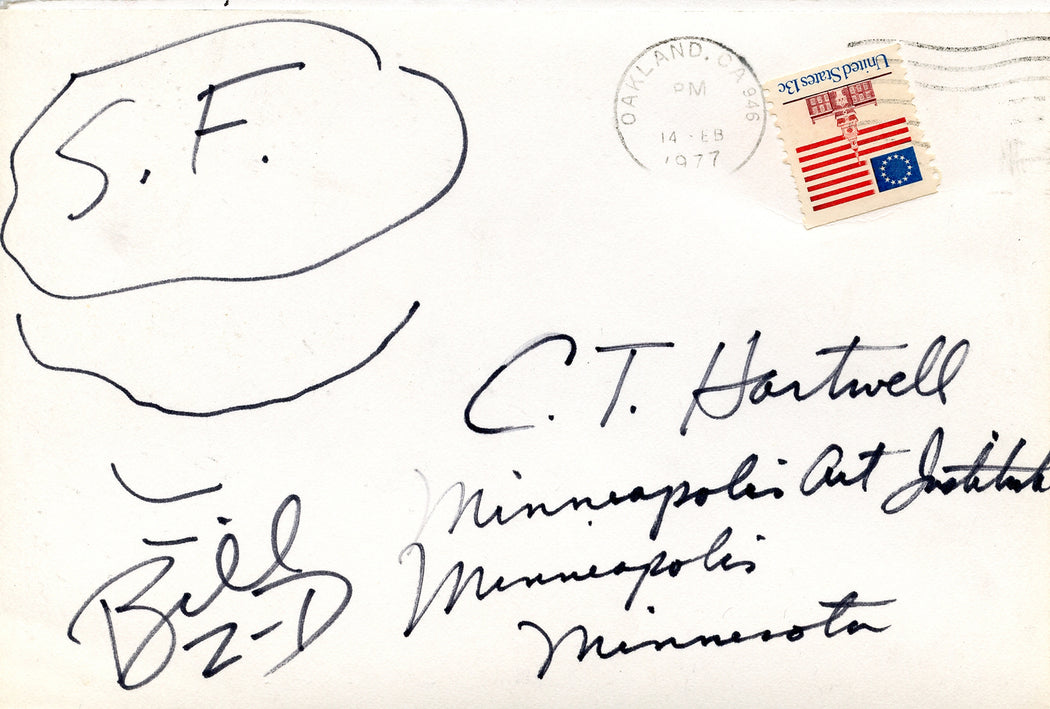 S. F.
OAKLAND, CA 946
PM
14 FEB
1977
United States 13c
C. T. Hartwell
Minneapolis Art Institute
Minneapolis
Minnesota
Bill
2-D